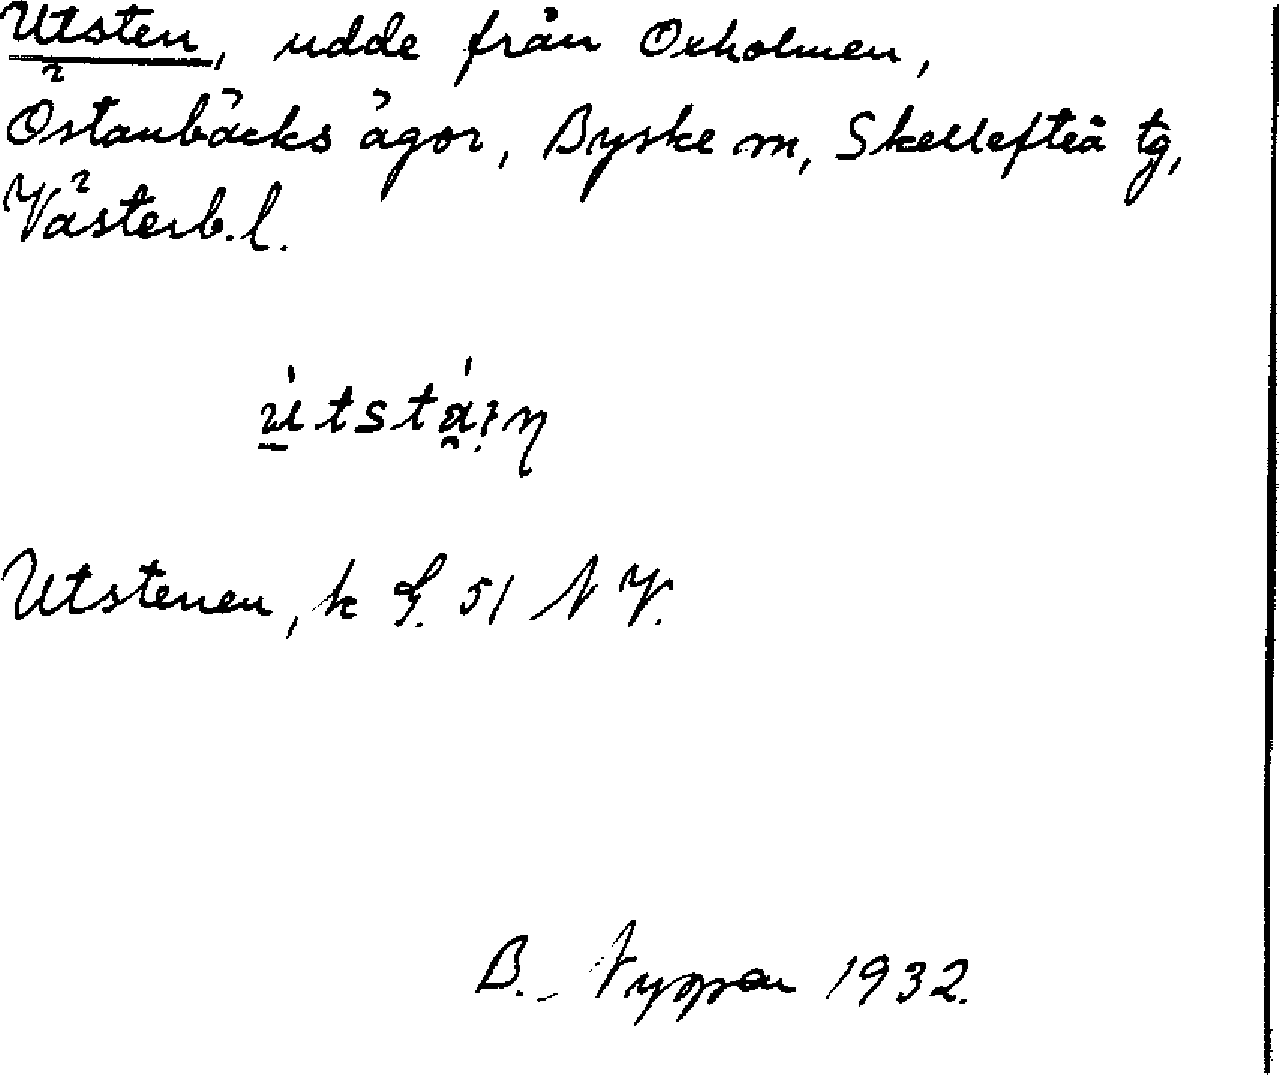 Utsten, udde från Oxholmen,
Östanbäcks ägor, Byske sn, Skellefteå tg,
Västerb. l.
Utstenen, k S. 51 NV.
B. 1932.